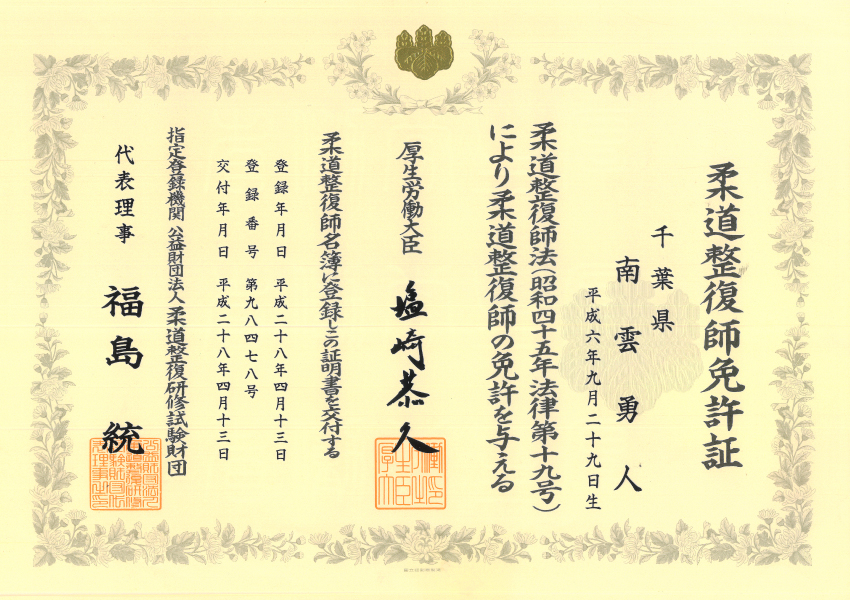 柔道整復師免許証
千葉県
南雲勇人
平成六年九月二十九日生
柔道整復師法(昭和四十五年法律第十九号)
により柔道整復師の免許を与える
厚生労働大臣 塩崎恭久
柔道整復師名簿に登録しこの証明書を交付する
登録年月日 平成二十八年四月十三日
登録番号 第九八四七八号
交付年月日 平成二十八年四月十三日
指定登録機関 公益財団法人柔道整復研修試験財団
代表理事 福島統